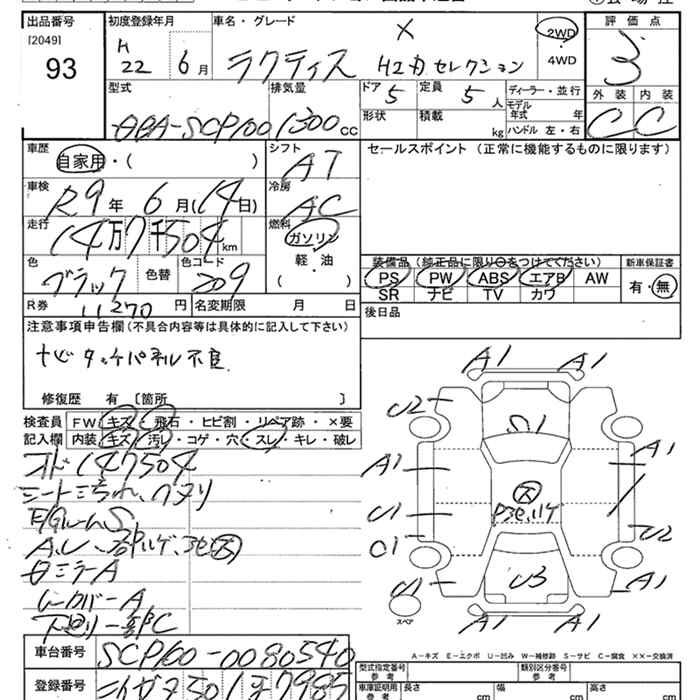 出品番号 初度登録年月 車名・グレード 評価点
[2049]
93
H22 6月 ラクティス X HIDセレクション 2WD・4WD 3
外装 内装
C C
型式 排気量 ドア 定員 ディーラー・並行
DBA-SCP100 1300cc 5 5人 モデル年式 年
形状 積載 kg ハンドル 左・右
車歴 シフト セールスポイント（正常に機能するものに限ります）
自家用・( ) AT
車検 冷房
R9年6月(14日) AC
走行 燃料
14万7千504km ガソリン
軽・油
( )
色 色替 色コード
ブラック 209
装備品（純正品に限り○をつけてください） 新車保証書
PS PW ABS エアB AW 有・無
SR ナビ TV カワ
R券 11270円 名変期限 月 日 後日品
注意事項申告欄(不具合内容等は具体的に記入して下さい)
ナビタッチパネル不良
修復歴 有〔箇所 〕
検査員 FW キズ・飛石・ヒビ割・リペア跡・×要
記入欄 内装 キズ・汚レ・コゲ・穴・スレ・キレ・破レ
オド147504
シート汚れ、
E/GルームS
ミラーA
下廻り一部C
A1 A1
U2 S1
A1 A1
U1 U2
U1 U3 A1
A1 A1
スペア
A…キズ E…エクボ U…凹み W…補修跡 S…サビ C…腐食 ××…交換済
車台番号 SCP100-0080540
型式指定番号 参考 類別区分番号 参考
登録番号
車庫証明用 参考 長さ cm 幅 cm 高さ cm